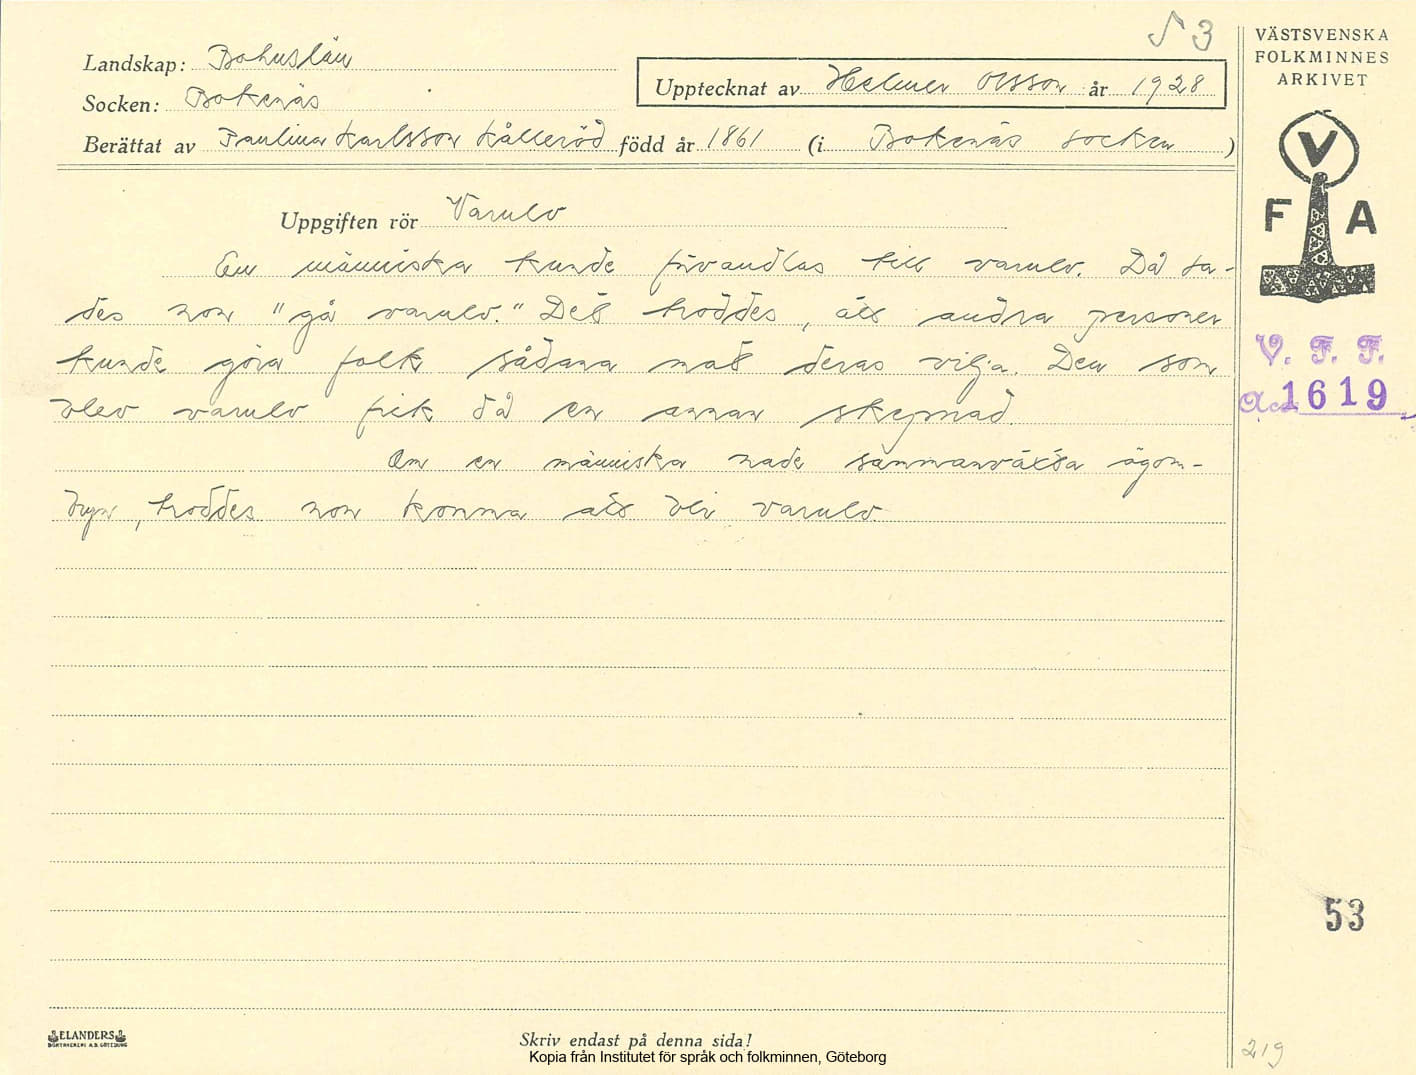 S 3
VÄSTSVENSKA
FOLKMINNES
ARKIVET
Landskap: Bohuslän
Socken: Bokenäs
Upptecknat av Helmer Olsson år 1928
Berättat av Paulina Karlsson Kålleröd född år 1861 (i Bokenäs socken )
V
F A
Uppgiften rör Varulv
En människa kunde förvandlas till varulv. Då sa-
des hon "gå varulv." Det troddes, att andra personer
kunde göra folk sådana mot deras vilja. Den som
blev varulv fick då en annan skepnad.
Om en människa hade sammanväxta ögon-
bryn, troddes hon komma att bli varulv.
V. F. F.
Acc. 1619
53
ELANDERS
BOKTRYCKERI A.B. GÖTEBORG
Skriv endast på denna sida!
Kopia från Institutet för språk och folkminnen, Göteborg
219